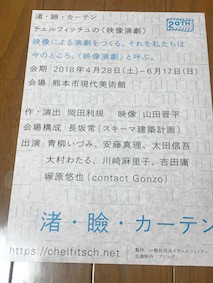 渚・瞼・カーテン
チェルフィッチュの〈映像演劇〉
映像による演劇をつくる。それを私たちは
今のところ、〈映像演劇〉と呼ぶ。
会期：2018年4月28日(土)–6月17日(日)
会場：熊本市現代美術館
作・演出：岡田利規 映像：山田晋平
会場構成：長坂常(スキーマ建築計画)
出演：青柳いづみ、安藤真理、太田信吾
大村わたる、川﨑麻里子、吉田庸
塚原悠也(contact Gonzo)
渚・瞼・カーテン
https://chelfitsch.net